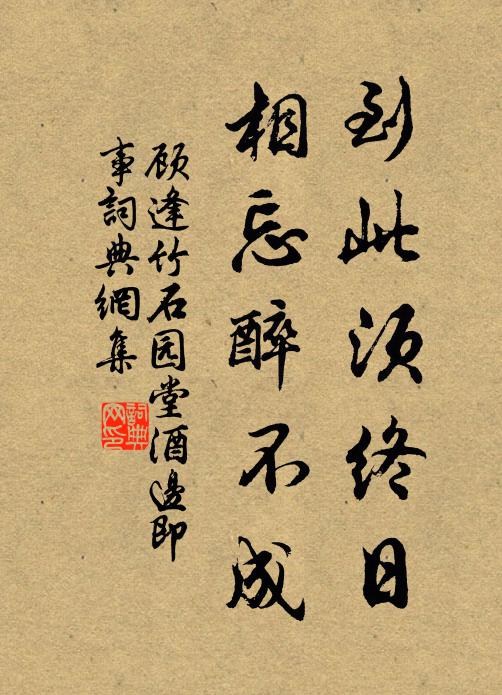 到此须终日
相忘醉不成
顾逢竹石园堂酒邊即
事詞典網集
詞典
网印